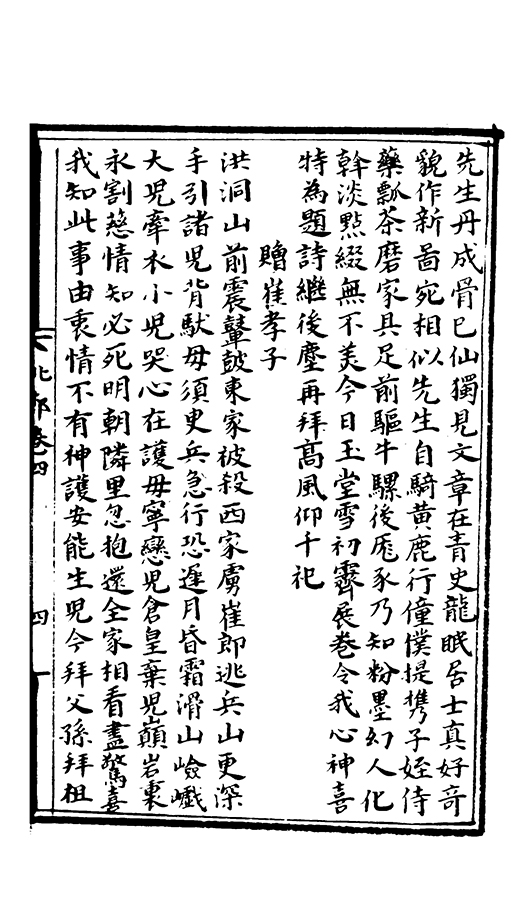 先生丹成骨已仙獨見文章在青史龍眠居士真好奇
貌作新啚宛相似先生自騎黃鹿行僮僕提携子姪侍
藥瓢茶磨家具足前驅牛騾後厖豕乃知粉墨幻人化
幹淡㸃綴無不美今日玉堂雪初霽展卷令我心神喜
特為題詩繼後塵再拜髙風仰千祀
贈崔孝子
洪洞山前震鼙皷東家被殺西家虜崔郎逃兵山更深
手引諸児背䭾母須㬰兵急行恐遲月昏霜滑山嶮巇
大児牽衣小児哭心在護母寧戀児倉皇棄児巔岩裏
永割慈情知必死明朝隣里忽抱還全家相看盡驚喜
我知此事由衷情不有神護安能生児今拜父孫拜祖
北郭卷四
四